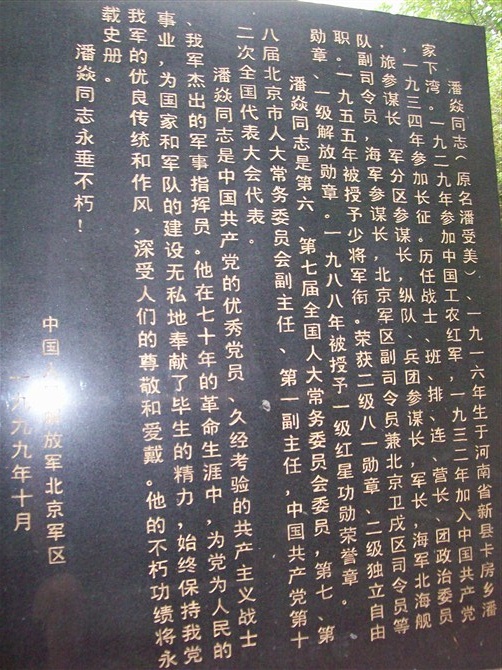 潘焱同志(原名潘受美)、一九一六年生于河南省新县卡房乡潘
家下湾。一九二九年参加中国工农红军,一九三二年加入中国共产党
,一九三四年参加长征。历任战士、班、排、连、营长、团政治委员
、旅参谋长、军分区参谋长,纵队、兵团参谋长,军长,海军北海舰
队副司令员,海军参谋长,北京军区副司令员兼北京卫戍区司令员等
职。一九五五年被授予少将军衔。荣获二级八一勋章、二级独立自由
勋章、一级解放勋章。一九八八年被授予一级红星功勋荣誉章。
潘焱同志是第六、第七届全国人大常务委员会委员,第七、第
八届北京市人大常务委员会副主任、第一副主任,中国共产党第十
二次全国代表大会代表。
潘焱同志是中国共产党的优秀党员、久经考验的共产主义战士
、我军杰出的军事指挥员。他在七十年的革命生涯中,为党为人民的
事业,为国家和军队的建设无私地奉献了毕生的精力,始终保持我党
我军的优良传统和作风,深受人们的尊敬和爱戴。他的不朽功绩将永
载史册。
潘焱同志永垂不朽!
中国人 放军北京军区
一九九九年十月